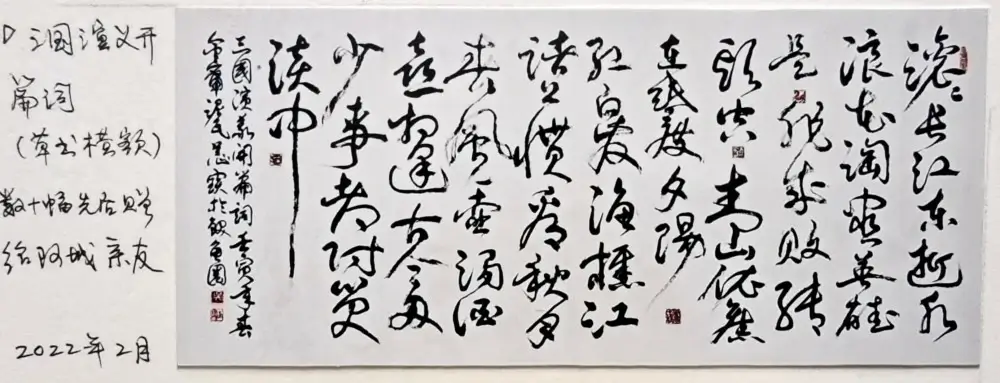 三国演义开
篇词
(草书横额)
数十幅先后赠
给阿城亲友
2022年2月
滚〻长江东逝水
浪花淘盡英雄
是非成败转
头空青山依舊
在幾度夕陽
红白发渔樵江
渚上惯看秋月
春風一壶濁酒
喜相逢古今多
少事都付笑
谈中
三國演義開篇詞壬寅年春